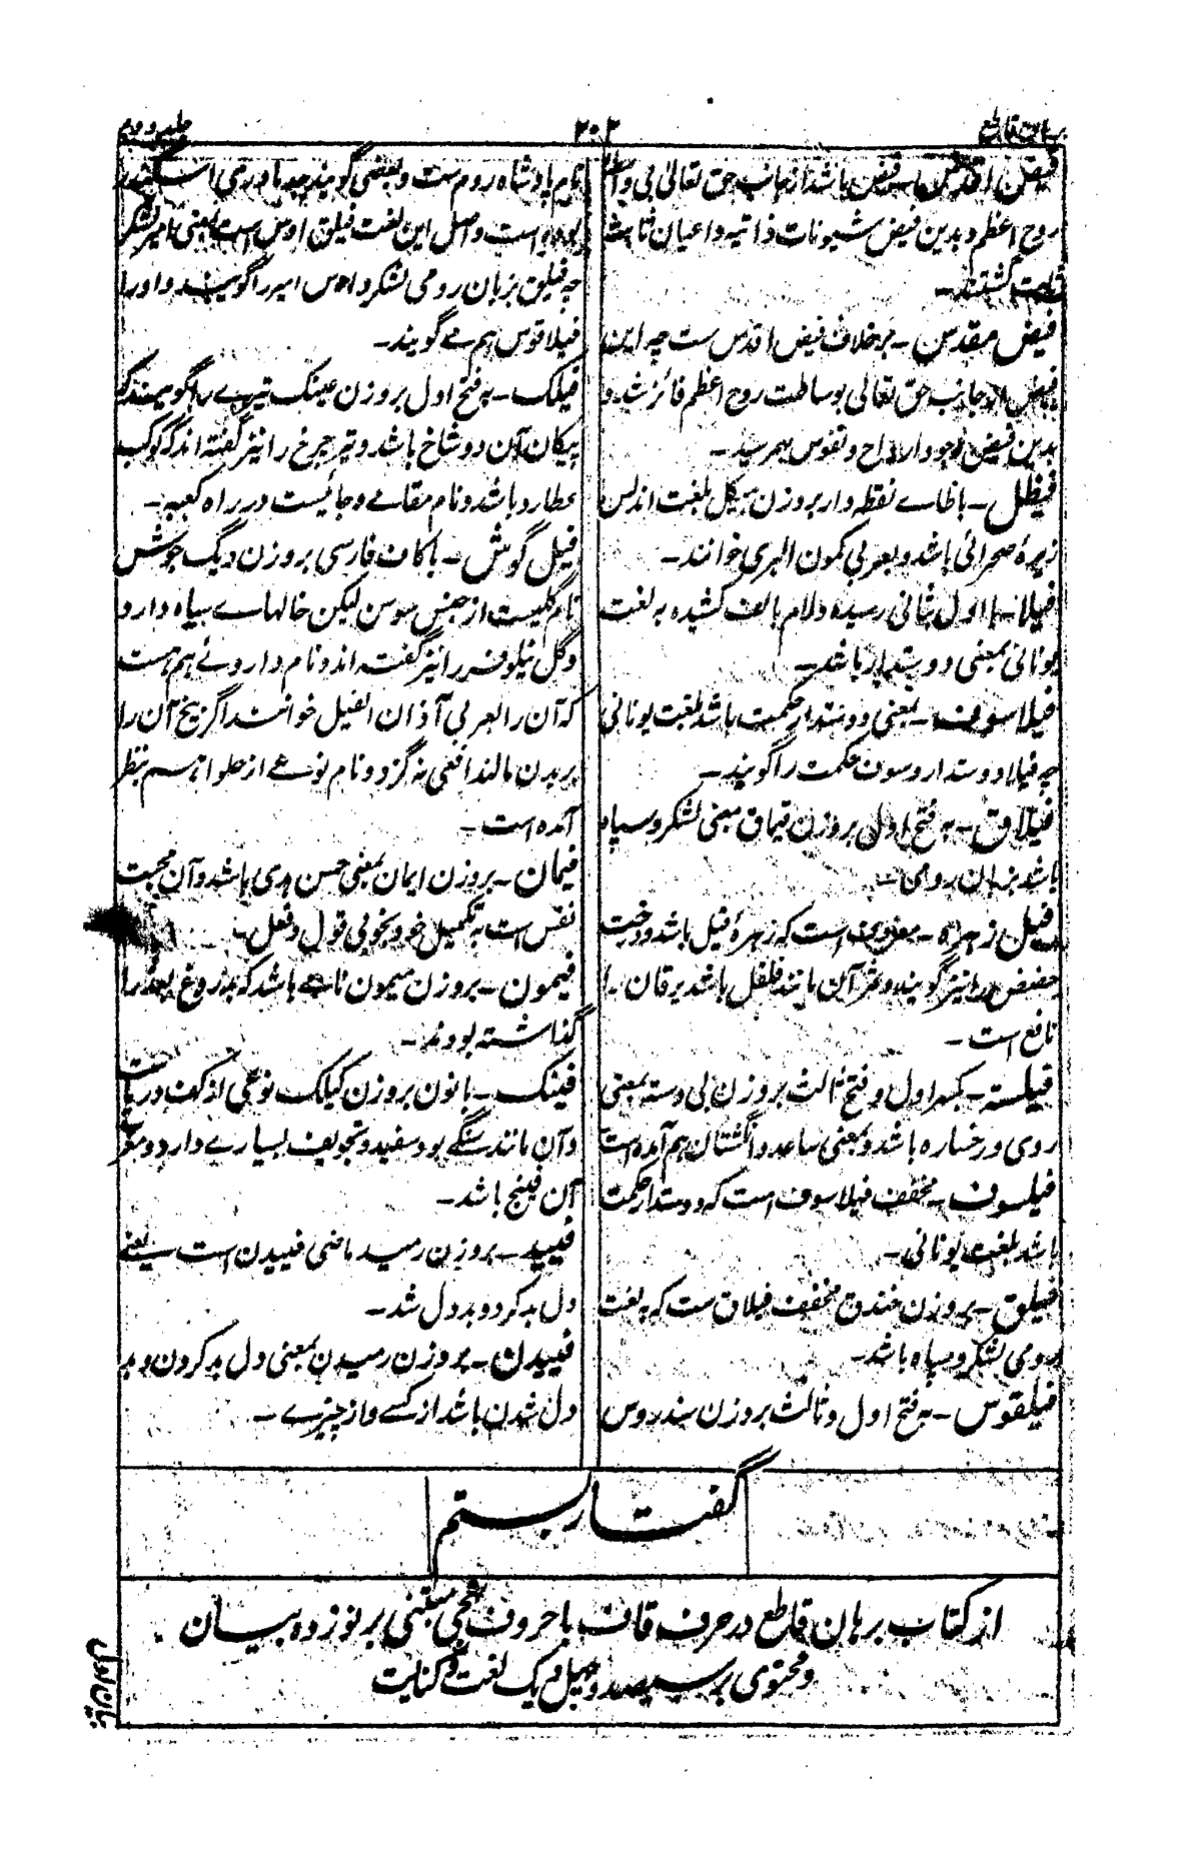 برهان قاطع
۲۰۲
جلد دوم
فیض اقدس - فیض باشد از جانب حق تعالی بی واسطه
روح اعظم و بدین فیض شیونات ذاتیه و اعیان ثابته
ثابت گشتند -
فیض مقدس - برخلاف فیض اقدس ست چه این
فیض از جانب حق تعالی بوساطت روح اعظم فائز شد و
بدین فیض وجود ارواح و نفوس بهم رسید -
فیظل - باظاے نقطه دار بروزن هیکل بلغت اندلس
زیرهٔ صحرائی باشد و بعربی کمون البری خوانند -
فیلا - با اول بثانی رسیده و لام بالف کشیده به لغت
یونانی بمعنی دوستدار باشد -
فیلاسوف - بمعنی دوستدار حکمت باشد بلغت یونانی
چه فیلا دوستدار و سوف حکمت را گویند -
فیلاق - به فتح اول بروزن قیماق بمعنی لشکر و سپاه
باشد بزبان رومی -
فیل زهره - معروف است که زهرهٔ فیل باشد و درخت
حضض را نیز گویند و ثمر آن مانند فلفل باشد یرقان را
نافع است -
فیلسته - بکسر اول و فتح ثالث بروزن بی دسته بمعنی
روی و رخساره باشد و بمعنی ساعد و انگشتان هم آمده است
فیلسوف - مخفف فیلاسوف است که دوستدار حکمت
باشد بلغت یونانی -
فیلق - بروزن خندق مخفف فیلاق ست که به لغت
رومی لشکر و سپاه باشد -
فیلقوس - به فتح اول و ثالث بروزن سندروس
نام پادشاه روم ست و بعضی گویند جد مادری اسکندر
بوده است و اصل این لغت فیلق اوس است یعنی امیر لشکر
چه فیلق بزبان رومی لشکر و اوس امیر را گویند و او را
فیلاقوس هم مے گویند -
فیلک - به فتح اول بروزن عینک تیرے را گویند که
پیکان آن دو شاخ باشد و تیر چرخ را نیز گفته اند که کوکب
عطارد باشد و نام مقامے و جائیست در راه کعبه -
فیل گوش - باکاف فارسی بروزن دیگ جوش
نام گلیست از جنس سوسن لیکن خالهاے سیاه دارد
و گل نیلوفر را نیز گفته اند و نام داروئے هم هست
که آن را بعربی آذان الفیل خوانند اگر بیخ آن را
بر بدن مالند افعی نگزد و نام نوعے از حلوا هم بنظر
آمده است -
فیمان - بروزن ایمان بمعنی حسن هدی باشد و آن محبت
نفس است به تکمیل خود بخوبی قول و فعل -
فیمون - بروزن میمون نامے باشد که بدروغ عذرا را
گذاشته بودند -
فینک - بانون بروزن کیلک نوعی از کف دریاست
و آن مانند سنگے بود سفید و تجویف بسیارے دارد و معرب
آن فینج باشد -
فیید - بروزن رمید ماضی فییدن است یعنی
دل بد کرد و بد دل شد -
فییدن - بروزن رمیدن بمعنی دل بد کردن و بد
دل شدن باشد از کسے و از چیزے -
گفتار بستم
از کتاب برهان قاطع در حرف قاف با حروف تهجی مبتنی بر نوزده بیان
و محتوی بر سیصد و چهل و یک لغت و کنایت
بیان اول